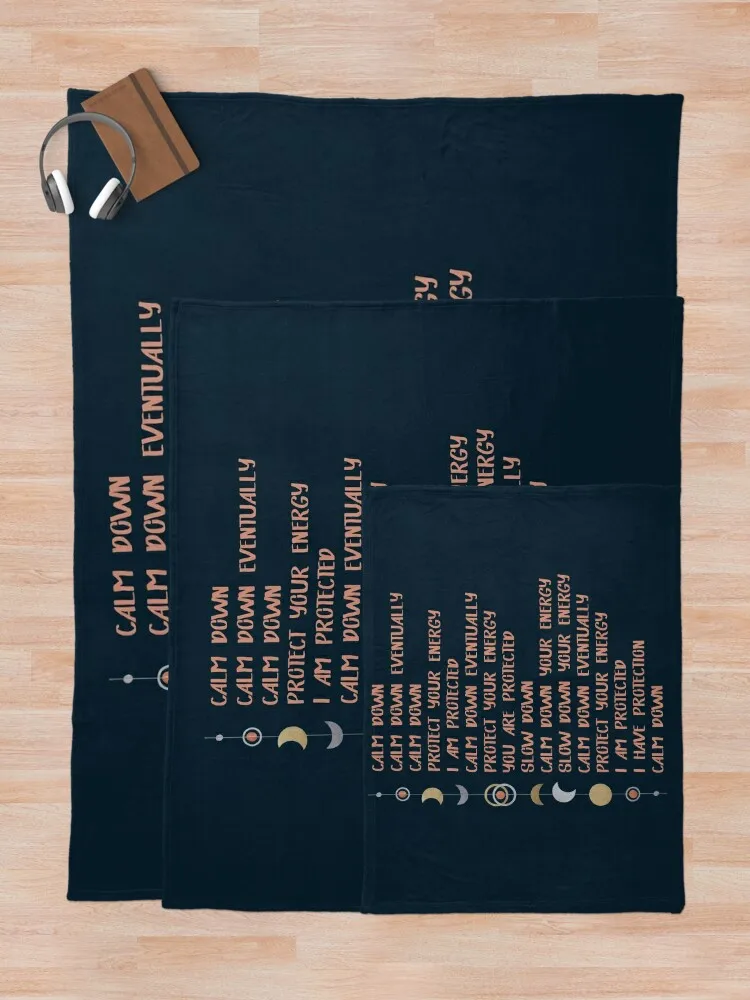 CALM DOWN
CALM DOWN EVENTUALLY
CALM DOWN
CALM DOWN EVENTUALLY
CALM DOWN
PROTECT YOUR ENERGY
I AM PROTECTED
CALM DOWN EVENTUALLY
CALM DOWN
CALM DOWN EVENTUALLY
CALM DOWN
PROTECT YOUR ENERGY
I AM PROTECTED
CALM DOWN EVENTUALLY
PROTECT YOUR ENERGY
YOU ARE PROTECTED
SLOW DOWN
CALM DOWN YOUR ENERGY
SLOW DOWN YOUR ENERGY
CALM DOWN EVENTUALLY
PROTECT YOUR ENERGY
I AM PROTECTED
I HAVE PROTECTION
CALM DOWN